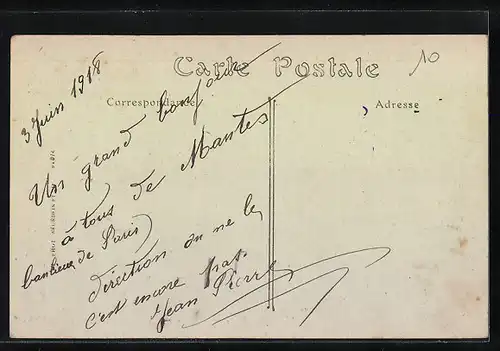 Carte Postale
10
Correspondance
Adresse
3 Juin 1918
Un grand bonjour
à tous de Mantes
(banlieue de Paris)
direction on ne le
c'est encore pas.
Jean Pierre